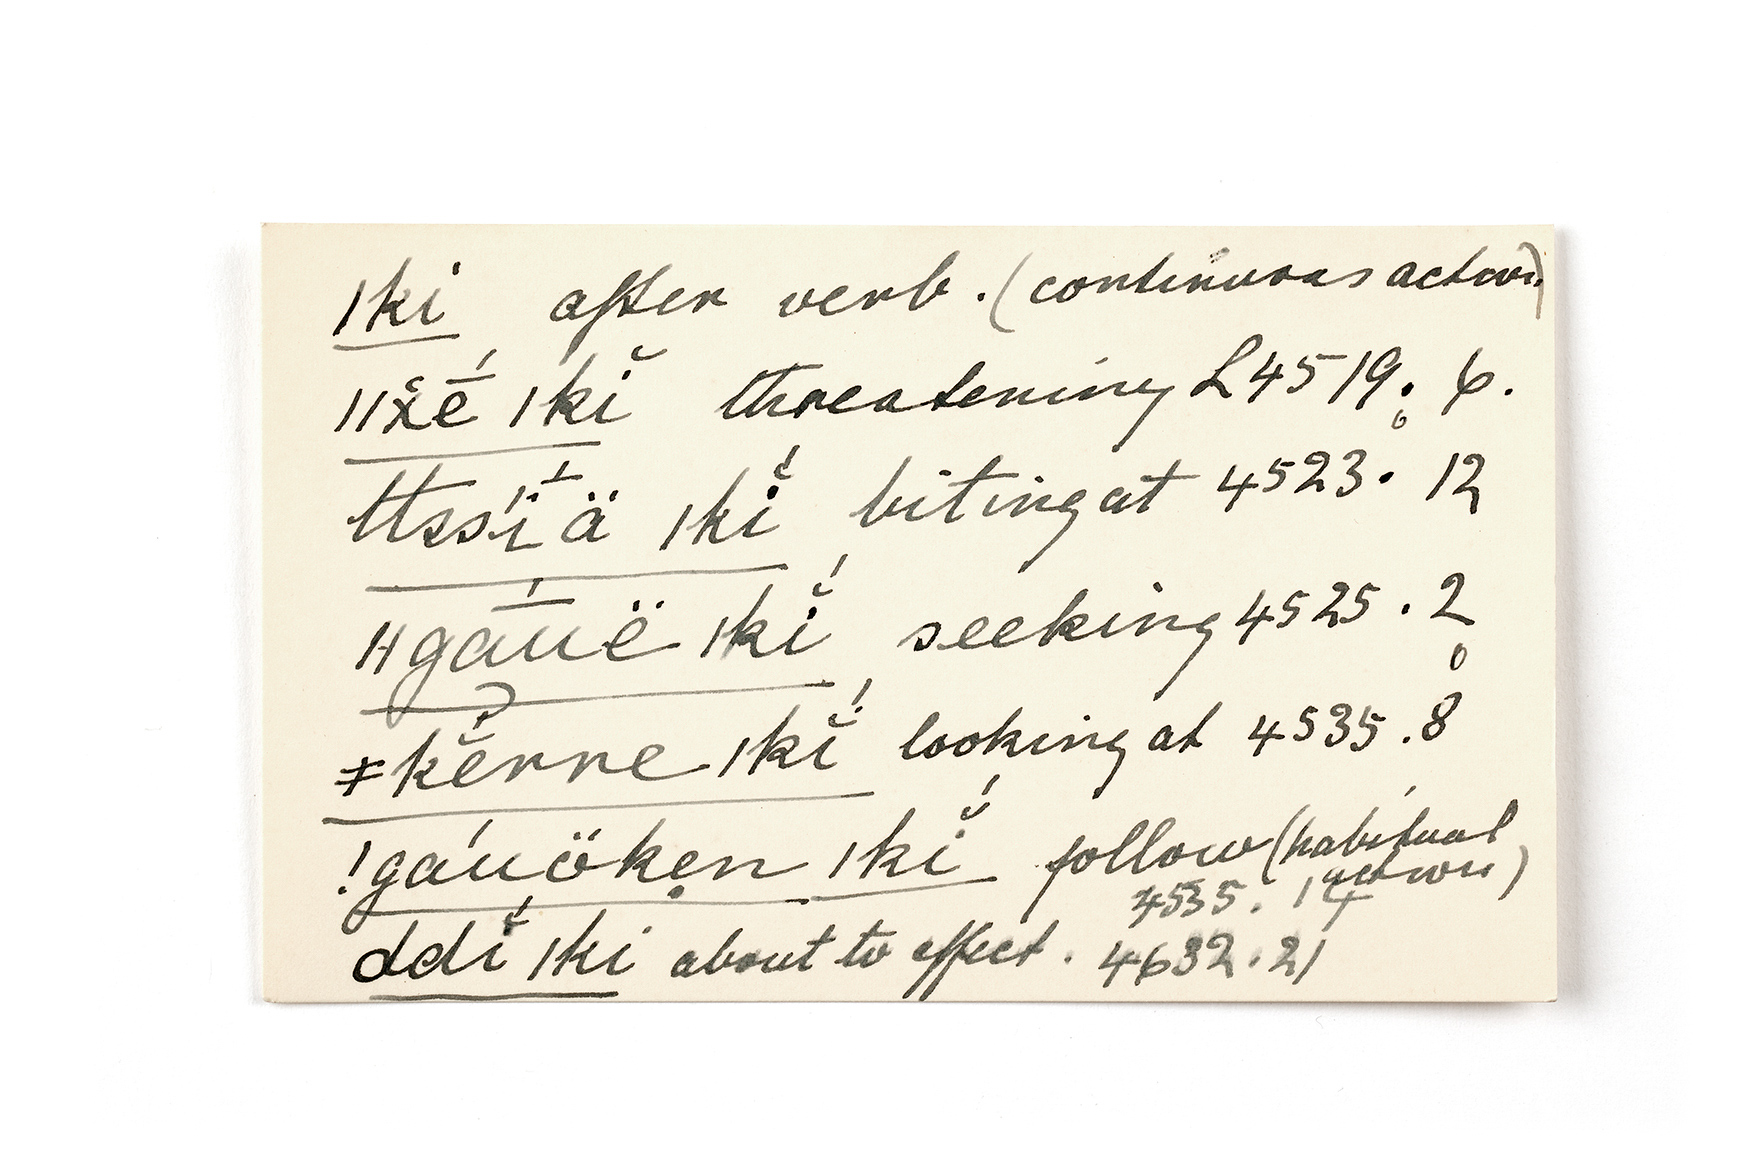 ǀki after verb. (continuous action)
ǁx̯é̄ ǀkĭ threatening L 4519. 6.
ttssī́ä ǀkĭ́ biting at 4523. 12
ǁgau̅ë ǀkĭ́ seeking 4525. 2
ǂkĕrre ǀkĭ́ looking at 4535. 8
!gáuöken ǀkĭ́ follow (habitual
action)
4535. 14
ddĭ́ ǀki about to effect. 4632. 21